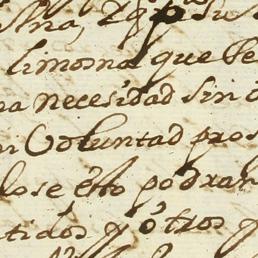 limosna que se
necesidad sin
Voluntad pros
lose esto podran
tidos y otros y